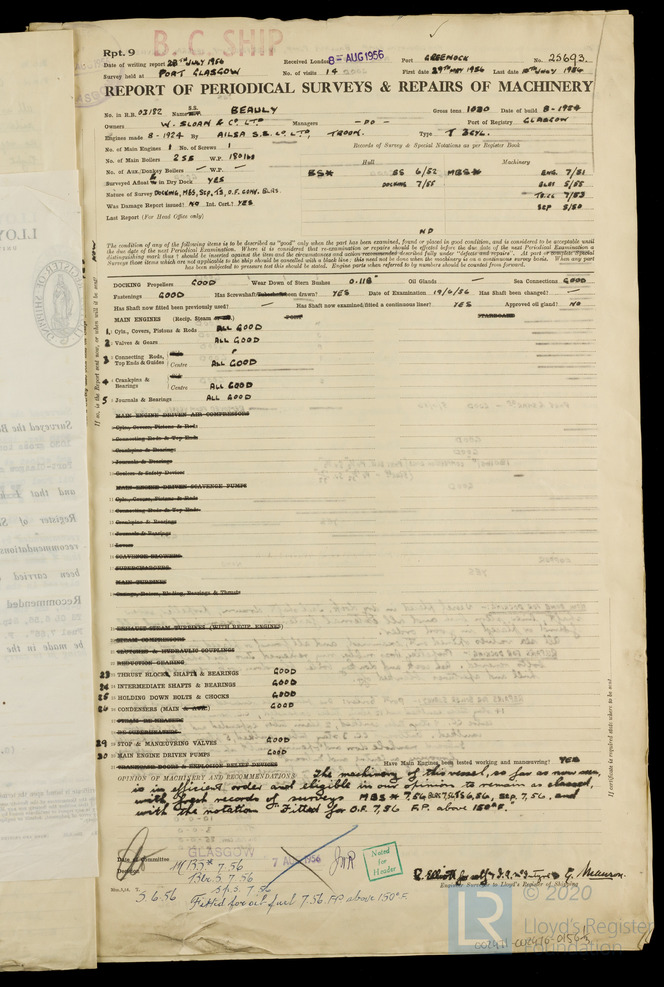 B.C. SHIP
Rpt. 9
Date of writing report 28TH JULY 1956 Received London 8 - AUG 1956 Port GREENOCK No. 25693.
Survey held at PORT GLASGOW No. of visits 14 First date 29TH MAY 1956 Last date 10TH JULY 1956
REPORT OF PERIODICAL SURVEYS & REPAIRS OF MACHINERY
No. in R.B. 03182 S.S. Name BEAULY Gross tons 1080 Date of build 8-1924
Owners W. SLOAN & CO. LTD Managers - DO - Port of Registry GLASGOW
Engines made 8-1924 By AILSA S.B. CO. LTD, TROON. Type T 3CYL.
No. of Main Engines 1 No. of Screws 1 Records of Survey & Special Notations as per Register Book
No. of Main Boilers 2 SB W.P. 180 lb Hull Machinery
No. of Aux./Donkey Boilers — W.P. — BS* SS 6/52 MBS* ENG. 7/51
Surveyed Afloat & in Dry Dock YES DOCKING 7/55 BLRS 5/55
Nature of Survey DOCKING, MBS, SCP, TS, O.F. CONV. BLRS.
Was Damage Report issued? NO Int. Cert.? YES
Last Report (For Head Office only)
ND
The condition of any of the following items is to be described as "good" only when the part has been examined, found or placed in good condition, and is considered to be acceptable until
the due date of next Periodical Examination. Where it is considered that re-examination or repairs should be effected before the due date of the next Periodical Examination a
distinguishing mark thus † should be inserted against the item and the circumstances and action recommended described fully under "defects and repairs".
DOCKING Propellers GOOD Wear Down of Stern Bushes 0.118" Oil Glands — Sea Connections GOOD
Fastenings GOOD Has Screwshaft been drawn? YES Date of Examination 19/6/56 Has Shaft been changed? —
Has Shaft now fitted been previously used? — Has Shaft now examined/fitted a continuous liner? YES Approved oil gland? NO
MAIN ENGINES (Recip. Steam PORT STARBOARD
1. Cyls., Covers, Pistons & Rods ALL GOOD
2 Valves & Gears ALL GOOD
3 Connecting Rods, Top Ends & Guides Centre ALL GOOD
4 Crankpins & Bearings Centre ALL GOOD
5 Journals & Bearings ALL GOOD
MAIN ENGINE DRIVEN AIR COMPRESSORS
Cyls., Covers, Pistons & Rods
Connecting Rods & Top Ends
Crankpins & Bearings
Journals & Bearings
Coolers & Safety Devices
MAIN ENGINE DRIVEN SCAVENGE PUMPS
Cyls., Covers, Pistons & Rods
Connecting Rods & Top Ends
Crankpins & Bearings
Journals & Bearings
Levers
SCAVENGE BLOWERS
SUPERCHARGERS
MAIN TURBINES
Casings, Rotors, Blading, Bearings & Thrusts
EXHAUST STEAM TURBINES (WITH RECIP. ENGINES)
STEAM COMPRESSORS
CLUTCHES & HYDRAULIC COUPLINGS
REDUCTION GEARING
23 THRUST BLOCKS, SHAFTS & BEARINGS GOOD
24 INTERMEDIATE SHAFTS & BEARINGS GOOD
25 HOLDING DOWN BOLTS & CHOCKS GOOD
26 CONDENSERS (MAIN & AUX.) GOOD
STEAM RE-HEATERS
DE-SUPERHEATERS
29 STOP & MANŒUVRING VALVES GOOD
30 MAIN ENGINE DRIVEN PUMPS GOOD
CRANKCASE DOORS & EXPLOSION RELIEF DEVICES
Have Main Engines been tested working and manœuvring? YES
OPINION OF MACHINERY AND RECOMMENDATIONS The machinery of this vessel, so far as now seen,
is in efficient order and eligible in our opinion to remain as classed,
with fresh records of surveys MBS* 7,56 SCP 7,56. and
with the notation "Fitted for O.F. 7,56 F.P. above 150°F."
Date of Committee GLASGOW 7 AUG 1956
Decision MBS* 7.56
Blrs. S. 7.56
Sp.S. 7.56
S. 6.56 Fitted for oil fuel 7.56. F.P. above 150°F
Noted for Header
Engineer Surveyor to Lloyd's Register of Shipping
© 2020
LR Lloyd's Register Foundation